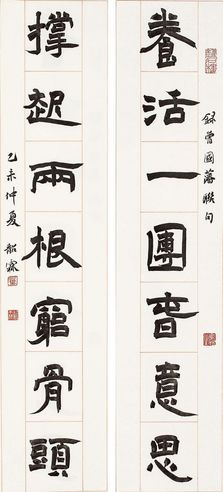 養活一團旾意思
錄曾國藩聯句
撐起兩根窮骨頭
乙未仲夏